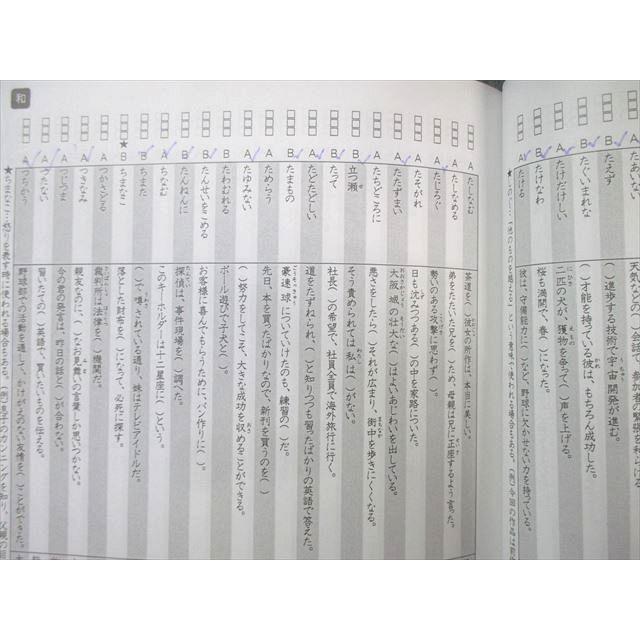 あいい
天気などの（　）会話で、参加者の緊張を和らげる
たえず
（　）進歩する技術で宇宙開発が進む。
B
たぐいまれな
（　）才能を持っている彼は、もちろん成功した。
A
たけだけしい
二匹の犬が、獲物を争って（　）声を上げる。
B
たけなわ
桜も満開で、春（　）になった。
A
たける
彼は、守備能力に（　）など、野球に欠かせない力を持っている。
和
A
たしなむ
茶道を（　）彼女の所作は、本当に美しい。
A
たしなめる
弟をたたいた兄を（　）ため、母親は兄に正座するよう言った。
B
たじろぐ
勢いのある攻撃に思わず（　）。
A
たそがれ
日も沈みつつある（　）の中を家路についた。
A
たたずまい
大阪城の壮大な（　）はよいあじわいを出している。
A
たちどころに
悪さをしたら（　）それが広まり、街中を歩きにくくなる。
B
立つ瀬
そう責められては私は（　）がない。
B
たって
社長（　）の希望で、社員全員で海外旅行に行く。
A
たどたどしい
道をたずねられ、（　）と知りつつも習ったばかりの英語で答えた。
B
たまもの
豪速球についていけたのも、練習の（　）だ。
A
ためらう
先日、本を買ったばかりなので、新刊を買うのを（　）
A
たゆみない
（　）努力をしてこそ、大きな成功を収めることができる。
B
たわむれる
ボール遊びで子犬と（　）。
B
たんせいをこめる
お客様に喜んでもらうために、パン作りに（　）。
B
たんねんに
探偵は、事件現場を（　）調べた。
A
ちなむ
このキーホルダーは十二星座に（　）という。
B
ちまた
（　）で噂されている通り、妹はテレビアイドルだ。
★
B
ちまなこ
落とした財布を（　）になって、必死に探す。
A
つかさどる
裁判所は法律を（　）機関だ。
A
つきなみ
親友なのに、（　）なお見舞いの言葉しか思いつかない。
A
つじつま
今の君の発言は、昨日の話と（　）が合わない。
A
つたない
習いたての（　）英語で、買いたいものを伝える。
A
つちかう
野球部での活動を通して、かけがえのない友情を（　）ことができた。